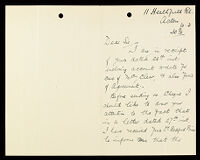 11 Heathfield Rd.
Acton
W.3
Dear Sir -
I am in receipt
of yours dated 28th inst.
enclosing account
of Mr Clear also form
of Agreement.
Before sending to
should like to draw your
attention to the fact that
in a letter dated 27th inst.
I have received from
to inform me that the